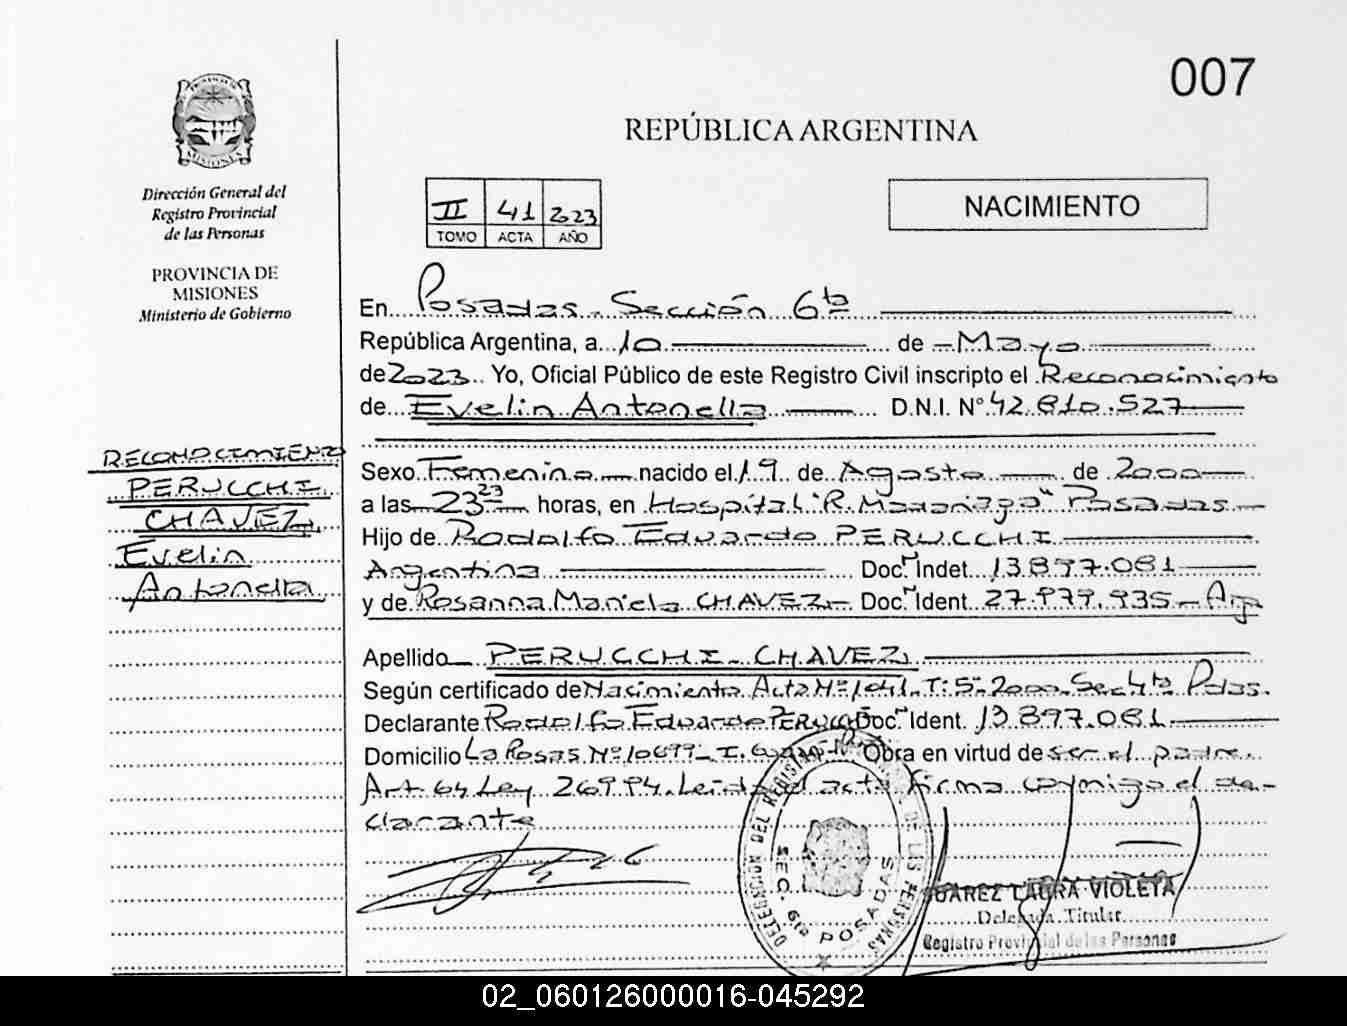 007
REPÚBLICA ARGENTINA
MISIONES
Dirección General del
Registro Provincial
de las Personas
PROVINCIA DE
MISIONES
Ministerio de Gobierno
II 41 2023
TOMO ACTA AÑO
NACIMIENTO
En Posadas. Sección 6ta
República Argentina, a 10 de Mayo
de 2023 Yo, Oficial Público de este Registro Civil inscripto el Reconocimiento
de Evelin Antonella D.N.I. N° 42.810.527
RECONOCIMIENTO
PERUCCHI
CHAVEZ
Evelin
Antonella
Sexo Femenino nacido el 19 de Agosto de 2000
a las 23 23 horas, en Hospital "R. Madariaga" Posadas
Hijo de Rodolfo Eduardo PERUCCHI
Argentina Doc. Indet 13.897.081
y de Rosanna Mariela CHAVEZ Doc. Ident. 27.979.935 Arg
Apellido PERUCCHI - CHAVEZ
Según certificado de Nacimiento Acta N° 1041 T: 5° 2000 Sec 4ta Pdas.
Declarante Rodolfo Eduardo PERUCCHI Doc. Ident. 13.897.081
Domicilio La Rosas N° 10677 Obra en virtud de ser el padre.
Art 64 Ley 26994. Leida el acta firma conmigo el de-
clarante
DELEGACION DEL REGISTRO DE LAS PERSONAS
SEC. 6ta POSADAS
SUAREZ LAURA VIOLETA
Delegada Titular
Registro Provincial de las Personas
02_060126000016-045292